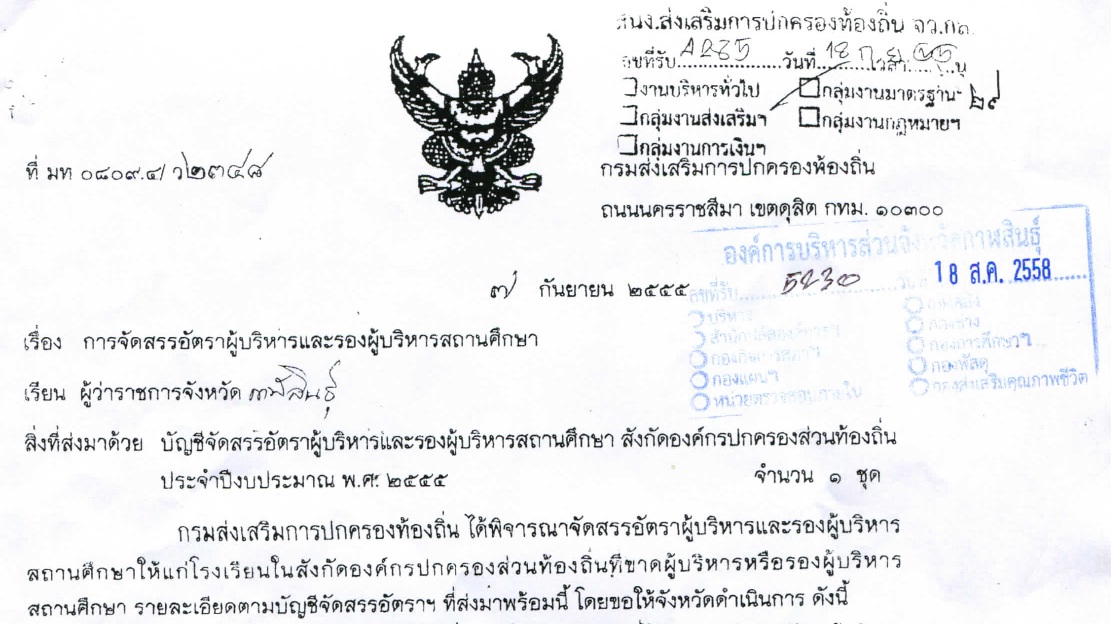 สนง.ส่งเสริมการปกครองท้องถิ่น จว.กส.
เลขที่รับ A285 วันที่ 18 ก.ย. 55
งานบริหารทั่วไป กลุ่มงานมาตรฐานฯ
กลุ่มงานส่งเสริมฯ กลุ่มงานกฎหมายฯ
กลุ่มงานการเงินฯ
ที่ มท ๐๘๐๙.๔/ว๒๓๔๘
กรมส่งเสริมการปกครองท้องถิ่น
ถนนนครราชสีมา เขตดุสิต กทม. ๑๐๓๐๐
องค์การบริหารส่วนจังหวัดกาฬสินธุ์
เลขที่รับ 5230 18 ส.ค. 2558
๗ กันยายน ๒๕๕๕
บริหาร กองคลัง
สำนักปลัดองค์การฯ กองช่าง
กองกิจการสภาฯ กองการศึกษาฯ
กองแผนฯ กองพัสดุ
หน่วยตรวจสอบภายใน กองส่งเสริมคุณภาพชีวิต
เรื่อง การจัดสรรอัตราผู้บริหารและรองผู้บริหารสถานศึกษา
เรียน ผู้ว่าราชการจังหวัด กาฬสินธุ์
สิ่งที่ส่งมาด้วย บัญชีจัดสรรอัตราผู้บริหารและรองผู้บริหารสถานศึกษา สังกัดองค์กรปกครองส่วนท้องถิ่น
ประจำปีงบประมาณ พ.ศ. ๒๕๕๕ จำนวน ๑ ชุด
กรมส่งเสริมการปกครองท้องถิ่น ได้พิจารณาจัดสรรอัตราผู้บริหารและรองผู้บริหาร
สถานศึกษาให้แก่โรงเรียนในสังกัดองค์กรปกครองส่วนท้องถิ่นที่ขาดผู้บริหารหรือรองผู้บริหาร
สถานศึกษา รายละเอียดตามบัญชีจัดสรรอัตราฯ ที่ส่งมาพร้อมนี้ โดยขอให้จังหวัดดำเนินการ ดังนี้